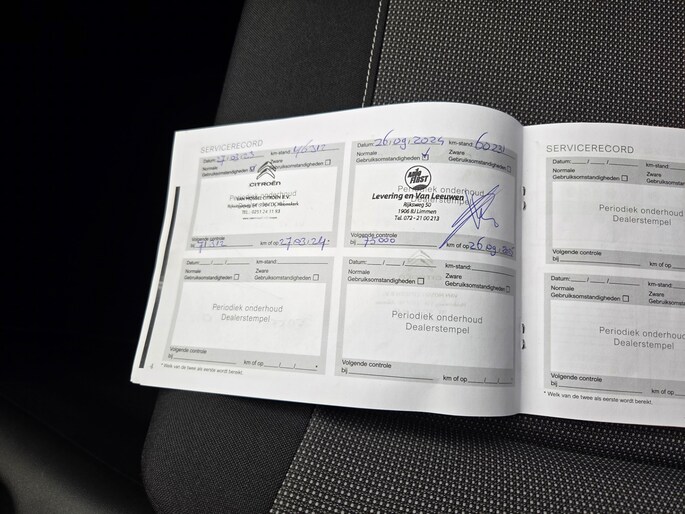 SERVICERECORD
Datum: 27/03/23 km-stand:
Normale Gebruiksomstandigheden Zware
CITROËN
Periodiek onderhoud
Dealerstempel
TEL.: 0251 74 11 93
Volgende controle
bij km of op 27.03.24.
Datum: 26.09.2024 km-stand: 60231
Normale Zware
Gebruiksomstandigheden Gebruiksomstandigheden
FIRST
Periodiek onderhoud
Levering en Van Leeuwen
Dealerstempel
Rijksweg 50
1906 BJ Limmen
Tel. 072 - 21 00 213
Volgende controle
bij 75000 km of op 26.09.
Datum: _ / _ / _ km-stand:
Normale Zware
Gebruiksomstandigheden Gebruiksomstandigheden
Periodiek onderhoud
Dealerstempel
Volgende controle
bij km of op _ / _ / _ *
Datum: _ / _ / _ km-stand:
Normale Zware
Gebruiksomstandigheden Gebruiksomstandigheden
Periodiek onderhoud
Dealerstempel
Volgende controle
bij km of op _ / _ / _ *
4 * Welk van de twee als eerste wordt bereikt.
SERVICERECORD
Datum: _ / _ / _ km-stand:
Normale Zware
Gebruiksomstandigheden Gebruiks
Periodiek onderhoud
Dealerstempel
Volgende controle
bij km of op
Datum: _ / _ / _ km-stand:
Normale Zware
Gebruiksomstandigheden Gebruiks
Periodiek onderhoud
Dealerstempel
Volgende controle
bij km of op
* Welk van de twee als eerste wordt bereikt.